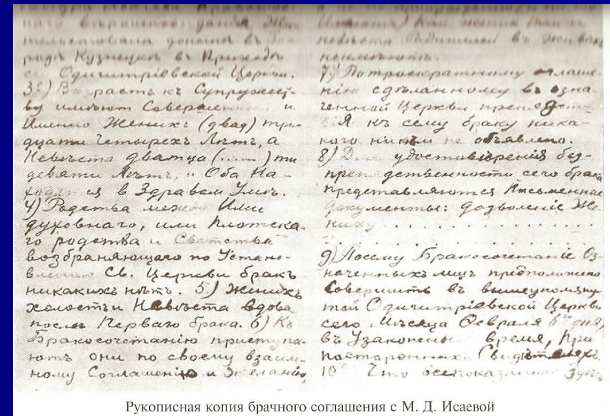 тельствована доныне въ Го-
родѣ Кузнецкѣ въ Приходѣ
Одигитріевской Церкви.
3) Возрастъ къ Супружест-
ву имѣютъ Совершенный и
Именно Женихъ (двад) три-
дцати четырехъ Лѣтъ, а
Невѣста двадца (.....) ти
девяти Лѣтъ, и Оба На-
ходятся въ Здравомъ Умѣ.
4) Родства между Ими
духовнаго, или плотска-
го родства и Сватовства
возбраняющаго по Устано-
вленію Св. Церкви бракъ
никакихъ нѣтъ. 5) Женихъ
холостъ и Невѣста вдова
послѣ Перваго брака. 6) Къ
Бракосочетанію приступа-
ютъ они по своему взаим-
ному Соглашенію и Желанію,
7) По троекратному оглаше-
нію сдѣланному въ озна-
ченной Церкви препятст-
вія къ сему браку ника-
кого никѣмъ не объявлено.
8) Для удостовѣренія без-
препятственности сего брака
представляются Письменные
документы: дозволеніе Же-
ниху
9) Посему Бракосочетаніе Оз-
наченныхъ лицъ предположено
Совершить въ вышеупомяну-
той Одигитріевской Церкви
сего Мѣсяца Февраля 6 дня
въ Узаконенное время, при
постороннихъ Свидѣтеляхъ.
10) Что все показанное
Рукописная копия брачного соглашения с М. Д. Исаевой